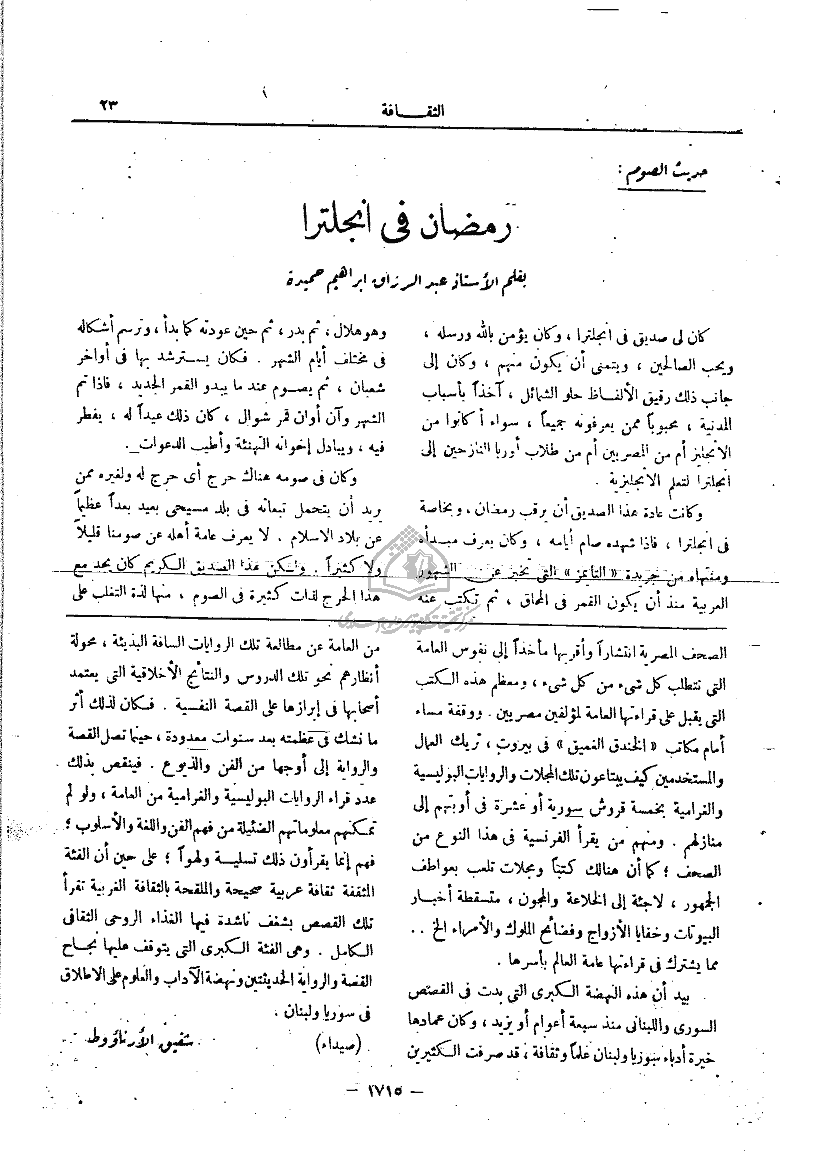 الثقافة
٢٣
حديث الصوم :
رمضان فى انجلترا
بقلم الأستاذ عبد الرزاق ابراهيم حميدة
كان لى صديق فى انجلترا ، وكان يؤمن بالله ورسله ،
ويحب الصالحين ، ويتمنى أن يكون منهم ، وكان إلى
جانب ذلك رقيق الألفاظ حلو الشمائل ، آخذاً بأسباب
المدنية ، محبوباً ممن يعرفونه جميعاً ، سواء أكانوا من
الانجليز أم من المصريين أم من طلاب أوربا النازحين إلى
انجلترا لتعلم الانجليزية .
وكانت عادة هذا الصديق أن يرقب رمضان ، وبخاصة
فى انجلترا ، فاذا شهده صام أيامه ، وكان يعرف مبدأه
ومنتهاه من جريدة « التايمز » التى تخبر عن الشهور
العربية منذ أن يكون القمر فى المحاق ، ثم تكتب عنه
وهو هلال ، ثم بدر ، ثم حين عودته كما بدأ ، وترسم أشكاله
فى مختلف أيام الشهر . فكان يسترشد بها فى أواخر
شعبان ، ثم يصوم عند ما يبدو القمر الجديد ، فاذا تم
الشهر وآن أوان قمر شوال ، كان ذلك عيداً له ، يفطر
فيه ، ويبادل إخوانه التهنئة وأطيب الدعوات .
وكان فى صومه هناك حرج أى حرج له ولغيره ممن
يريد أن يتحمل تبعاته فى بلد مسيحى بعيد بعداً عظيماً
عن بلاد الاسلام . لا يعرف عامة أهله عن صومنا قليلاً
ولا كثيراً . ولكن هذا الصديق الكريم كان يجد مع
هذا الحرج لذات كثيرة فى الصوم ، منها لذة التغلب على
الصحف المصرية انتشاراً وأقربها مأخذاً إلى نفوس العامة
التى تتطلب كل شىء من كل شىء ، ومعظم هذه الكتب
التى يقبل على قراءتها العامة لمؤلفين مصريين . ووقفة مساء
أمام مكاتب « الخندق الغميق » فى بيروت ، تريك العمال
والمستخدمين كيف يبتاعون تلك المجلات والروايات البوليسية
والغرامية بخمسة قروش سورية أو عشرة فى أوبتهم إلى
منازلهم . ومنهم من يقرأ الفرنسية فى هذا النوع من
الصحف ؛ كما أن هنالك كتباً ومجلات تلعب بعواطف
الجمهور ، لاجئة إلى الخلاعة والمجون ، متسقطة أخبار
البيوتات وخفايا الأزواج وفضائح الملوك والأمراء الخ ..
مما يشترك فى قراءتها عامة العالم بأسرها .
بيد أن هذه النهضة الكبرى التى بدت فى القصص
السورى واللبنانى منذ سبعة أعوام أو يزيد ، وكان عمادها
خيرة أدباء سوريا ولبنان علماً وثقافة ، قد صرفت الكثيرين
من العامة عن مطالعة تلك الروايات السافة البذيئة ، محولة
أنظارهم نحو تلك الدروس والنتائج الأخلاقية التى يعتمد
أصحابها فى إبرازها على القصة النفسية . فكان لذلك أثر
ما نشك فى عظمته بعد سنوات معدودة ، حينما تصل القصة
والرواية إلى أوجها من الفن والذيوع . فينقص بذلك
عدد قراء الروايات البوليسية والغرامية من العامة ، ولو لم
تمكنهم معلوماتهم الضئيلة من فهم الفن واللغة والأسلوب ؛
فهم إنما يقرأون ذلك تسلية ولهواً ؛ على حين أن الفئة
المثقفة ثقافة عربية صحيحة والملقحة بالثقافة الغربية تقرأ
تلك القصص بشغف ناشدة فيها الغذاء الروحى الثقافى
الكامل . وهى الفئة الكبرى التى يتوقف عليها نجاح
القصة والرواية الحديثتين ونهضة الآداب والعلوم على الاطلاق
فى سوريا ولبنان .
( صيداء ) شفيق الأرناؤوط
— ١٧١٥ —